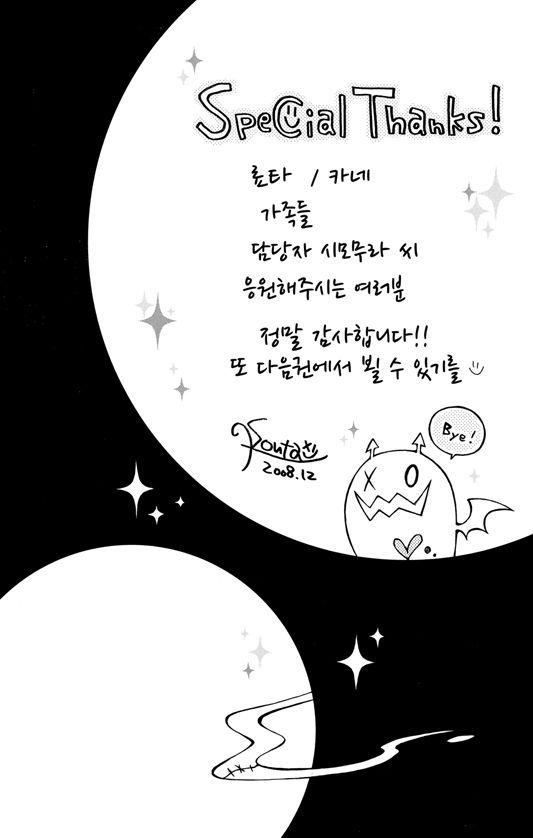 Special Thanks!
료타 / 카네
가족들
담당자 시모무라 씨
응원해주시는 여러분
정말 감사합니다!!
또 다음권에서 뵐 수 있기를
2008.12
Bye!